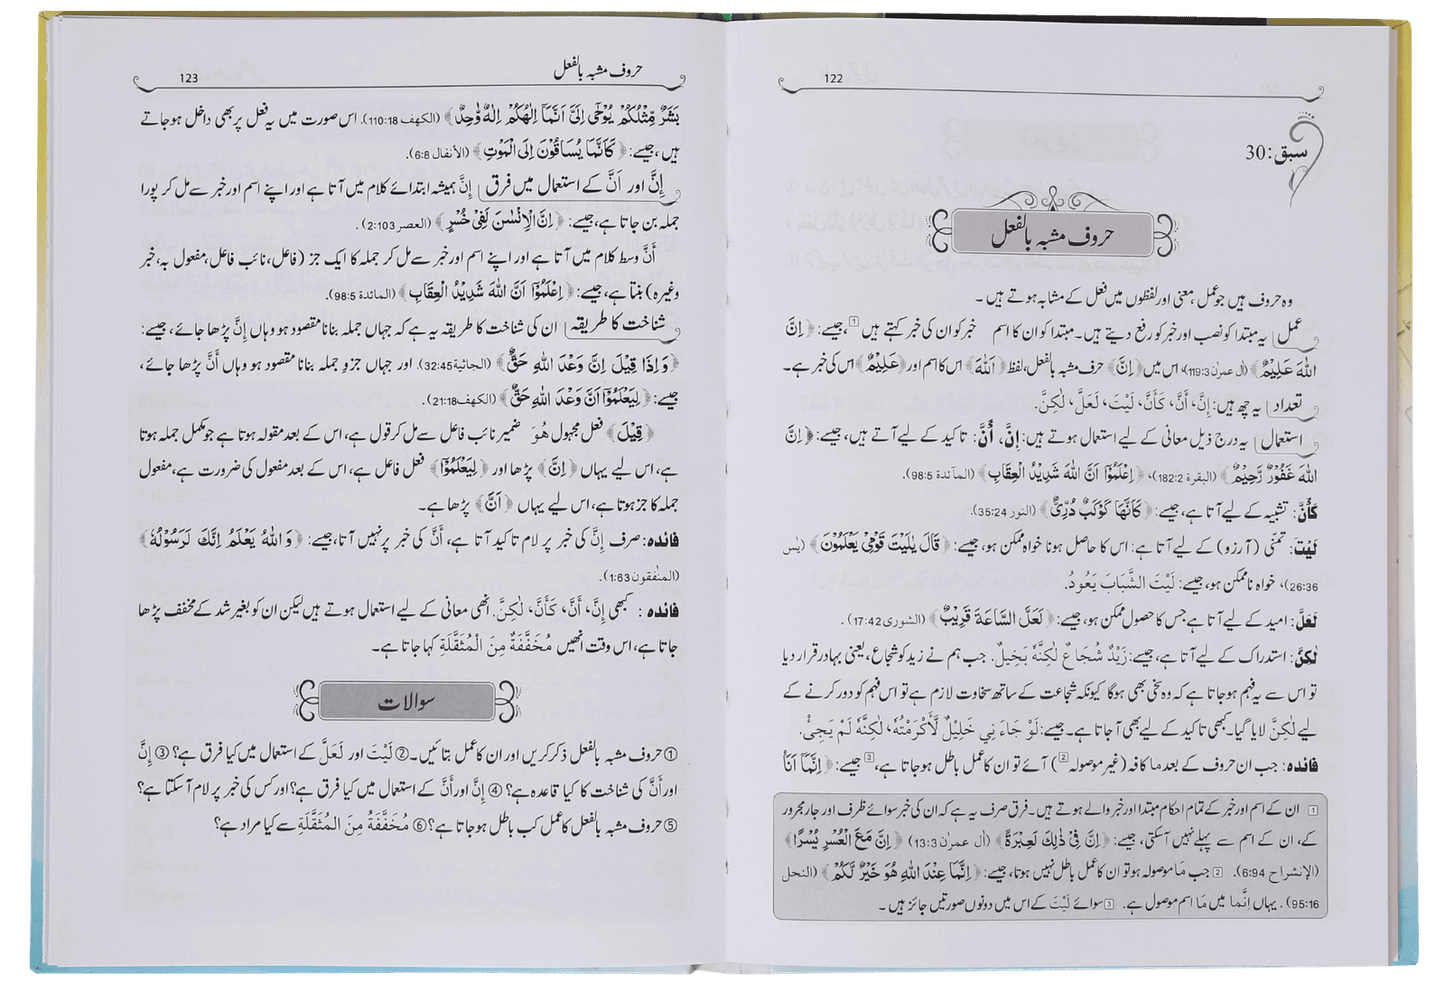 122
سبق:30
حروف مشبہ بالفعل
وہ حروف ہیں جو عمل، معنی اور لفظوں میں فعل کے مشابہ ہوتے ہیں۔
عمل یہ مبتدا کو نصب اور خبر کو رفع دیتے ہیں۔ مبتدا کو ان کا اسم خبر کو ان کی خبر کہتے ہیں 1، جیسے: ﴿إِنَّ
اللّٰهَ عَلِيْمٌ﴾ (آل عمرٰن 119:3)، اس میں ﴿إِنَّ﴾ حرف مشبہ بالفعل، لفظ ﴿اَللّٰهَ﴾ اس کا اسم اور ﴿عَلِيْمٌ﴾ اس کی خبر ہے۔
تعداد یہ چھ ہیں: إِنَّ، أَنَّ، كَأَنَّ، لَيْتَ، لَعَلَّ، لٰكِنَّ.
استعمال یہ درج ذیل معانی کے لیے استعمال ہوتے ہیں: إِنَّ، أَنَّ: تاکید کے لیے آتے ہیں، جیسے: ﴿إِنَّ
اللّٰهَ غَفُوْرٌ رَّحِيْمٌ﴾ (البقرة 182:2)، ﴿اِعْلَمُوْٓا اَنَّ اللّٰهَ شَدِيْدُ الْعِقَابِ﴾ (المآئدة 98:5).
كَأَنَّ: تشبیہ کے لیے آتا ہے، جیسے: ﴿كَاَنَّهَا كَوْكَبٌ دُرِّيٌّ﴾ (النور 35:24).
لَيْتَ: تمنّی (آرزو) کے لیے آتا ہے: اس کا حاصل ہونا خواہ ممکن ہو، جیسے: ﴿قَالَ يٰلَيْتَ قَوْمِيْ يَعْلَمُوْنَ﴾ (يٰس
26:36)، خواہ ناممکن ہو، جیسے: لَيْتَ الشَّبَابَ يَعُودُ.
لَعَلَّ: امید کے لیے آتا ہے جس کا حصول ممکن ہو، جیسے: ﴿لَعَلَّ السَّاعَةَ قَرِيْبٌ﴾ (الشورى 17:42).
لٰكِنَّ: استدراک کے لیے آتا ہے، جیسے: زَيْدٌ شُجَاعٌ لٰكِنَّهُ بَخِيلٌ. جب ہم نے زید کو شجاع، یعنی بہادر قرار دیا
تو اس سے یہ فہم ہو جاتا ہے کہ وہ سخی بھی ہوگا کیونکہ شجاعت کے ساتھ سخاوت لازم ہے تو اس فہم کو دور کرنے کے
لیے لٰكِنَّ لایا گیا۔ کبھی تاکید کے لیے بھی آ جاتا ہے۔ جیسے: لَوْ جَاءَنِي خَلِيْلٌ لَّأَكْرَمْتُهُ، لٰكِنَّهُ لَمْ يَجِئْ.
فائدہ: جب ان حروف کے بعد ما کافہ (غیر موصولہ 2) آئے تو ان کا عمل باطل ہو جاتا ہے، 3 جیسے: ﴿اِنَّمَآ اَنَا۠
1 ان کے اسم اور خبر کے تمام احکام مبتدا اور خبر والے ہوتے ہیں۔ فرق صرف یہ ہے کہ ان کی خبر سوائے ظرف اور جار مجرور
کے، ان کے اسم سے پہلے نہیں آسکتی، جیسے: ﴿اِنَّ فِيْ ذٰلِكَ لَعِبْرَةً﴾ (آل عمرٰن 13:3) ﴿اِنَّ مَعَ الْعُسْرِ يُسْرًا﴾
(الإنشراح 6:94). 2 جب مَا موصولہ ہو تو ان کا عمل باطل نہیں ہوتا، جیسے: ﴿اِنَّمَا عِنْدَ اللّٰهِ هُوَ خَيْرٌ لَّكُمْ﴾ (النحل
95:16). یہاں اِنَّمَا میں مَا اسم موصول ہے۔ 3 سوائے لَيْتَ کے اس میں دونوں صورتیں جائز ہیں۔
حروف مشبہ بالفعل
123
بَشَرٌ مِّثْلُكُمْ يُوْحٰٓى اِلَيَّ اَنَّمَآ اِلٰهُكُمْ اِلٰهٌ وَّاحِدٌ﴾ (الكهف 110:18). اس صورت میں یہ فعل پر بھی داخل ہو جاتے
ہیں، جیسے: ﴿كَاَنَّمَا يُسَاقُوْنَ اِلَى الْمَوْتِ﴾ (الأنفال 6:8).
إِنَّ اور أَنَّ کے استعمال میں فرق إِنَّ ہمیشہ ابتدائے کلام میں آتا ہے اور اپنے اسم اور خبر سے مل کر پورا
جملہ بن جاتا ہے، جیسے: ﴿اِنَّ الْاِنْسٰنَ لَفِيْ خُسْرٍ﴾ (العصر 2:103).
أَنَّ وسط کلام میں آتا ہے اور اپنے اسم اور خبر سے مل کر جملہ کا ایک جز (فاعل، نائب فاعل، مفعول بہ، خبر
وغیرہ) بنتا ہے، جیسے: ﴿اِعْلَمُوْٓا اَنَّ اللّٰهَ شَدِيْدُ الْعِقَابِ﴾ (المائدة 98:5).
شناخت کا طریقہ ان کی شناخت کا طریقہ یہ ہے کہ جہاں جملہ بنانا مقصود ہو وہاں إِنَّ پڑھا جائے، جیسے:
﴿وَاِذَا قِيْلَ اِنَّ وَعْدَ اللّٰهِ حَقٌّ﴾ (الجاثية 32:45). اور جہاں جزو جملہ بنانا مقصود ہو وہاں أَنَّ پڑھا جائے،
جیسے: ﴿لِيَعْلَمُوْٓا اَنَّ وَعْدَ اللّٰهِ حَقٌّ﴾ (الكهف 21:18).
﴿قِيْلَ﴾ فعل مجہول هُوَ ضمیر نائب فاعل سے مل کر قول ہے، اس کے بعد مقولہ ہوتا ہے جو مکمل جملہ ہوتا
ہے، اس لیے یہاں ﴿اِنَّ﴾ پڑھا اور ﴿لِيَعْلَمُوْٓا﴾ فعل فاعل ہے، اس کے بعد مفعول کی ضرورت ہے، مفعول
جملہ کا جز ہوتا ہے، اس لیے یہاں ﴿اَنَّ﴾ پڑھا ہے۔
فائدہ: صرف إِنَّ کی خبر پر لام تاکید آتا ہے، أَنَّ کی خبر پر نہیں آتا، جیسے: ﴿وَاللّٰهُ يَعْلَمُ اِنَّكَ لَرَسُوْلُهٗ﴾
(المنٰفقون 1:63).
فائدہ: کبھی إِنَّ، أَنَّ، كَأَنَّ، لٰكِنَّ. انھی معانی کے لیے استعمال ہوتے ہیں لیکن ان کو بغیر شد کے مخفف پڑھا
جاتا ہے، اس وقت انھیں مُخَفَّفَةٌ مِنَ الْمُثَقَّلَةِ کہا جاتا ہے۔
سوالات
① حروف مشبہ بالفعل ذکر کریں اور ان کا عمل بتائیں۔ ② لَيْتَ اور لَعَلَّ کے استعمال میں کیا فرق ہے؟ ③ إِنَّ
اور أَنَّ کی شناخت کا کیا قاعدہ ہے؟ ④ إِنَّ اور أَنَّ کے استعمال میں کیا فرق ہے؟ اور کس کی خبر پر لام آسکتا ہے؟
⑤ حروف مشبہ بالفعل کا عمل کب باطل ہو جاتا ہے؟ ⑥ مُخَفَّفَةٌ مِنَ الْمُثَقَّلَةِ سے کیا مراد ہے؟